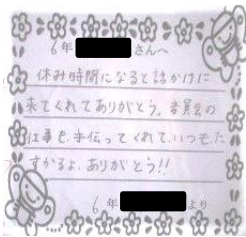 6年 さんへ
休み時間になると話かけに
来てくれてありがとう。委員会の
仕事も手伝ってくれて、いつもた
すかるよ。ありがとう!!
6年 より